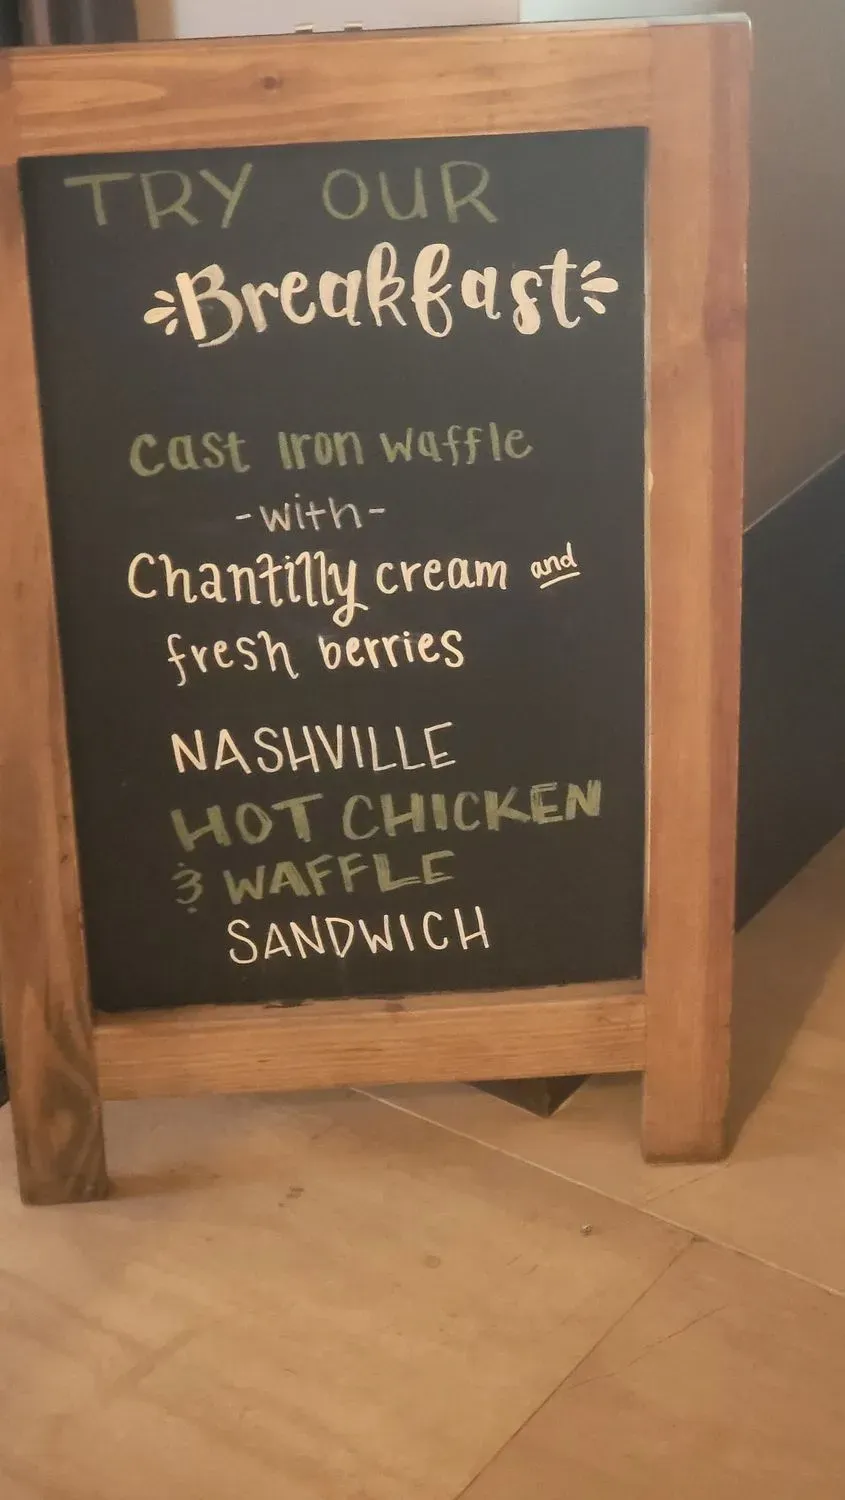 TRY OUR
Breakfast
Cast Iron Waffle
-with-
Chantilly cream and
fresh berries
NASHVILLE
HOT CHICKEN
& WAFFLE
SANDWICH